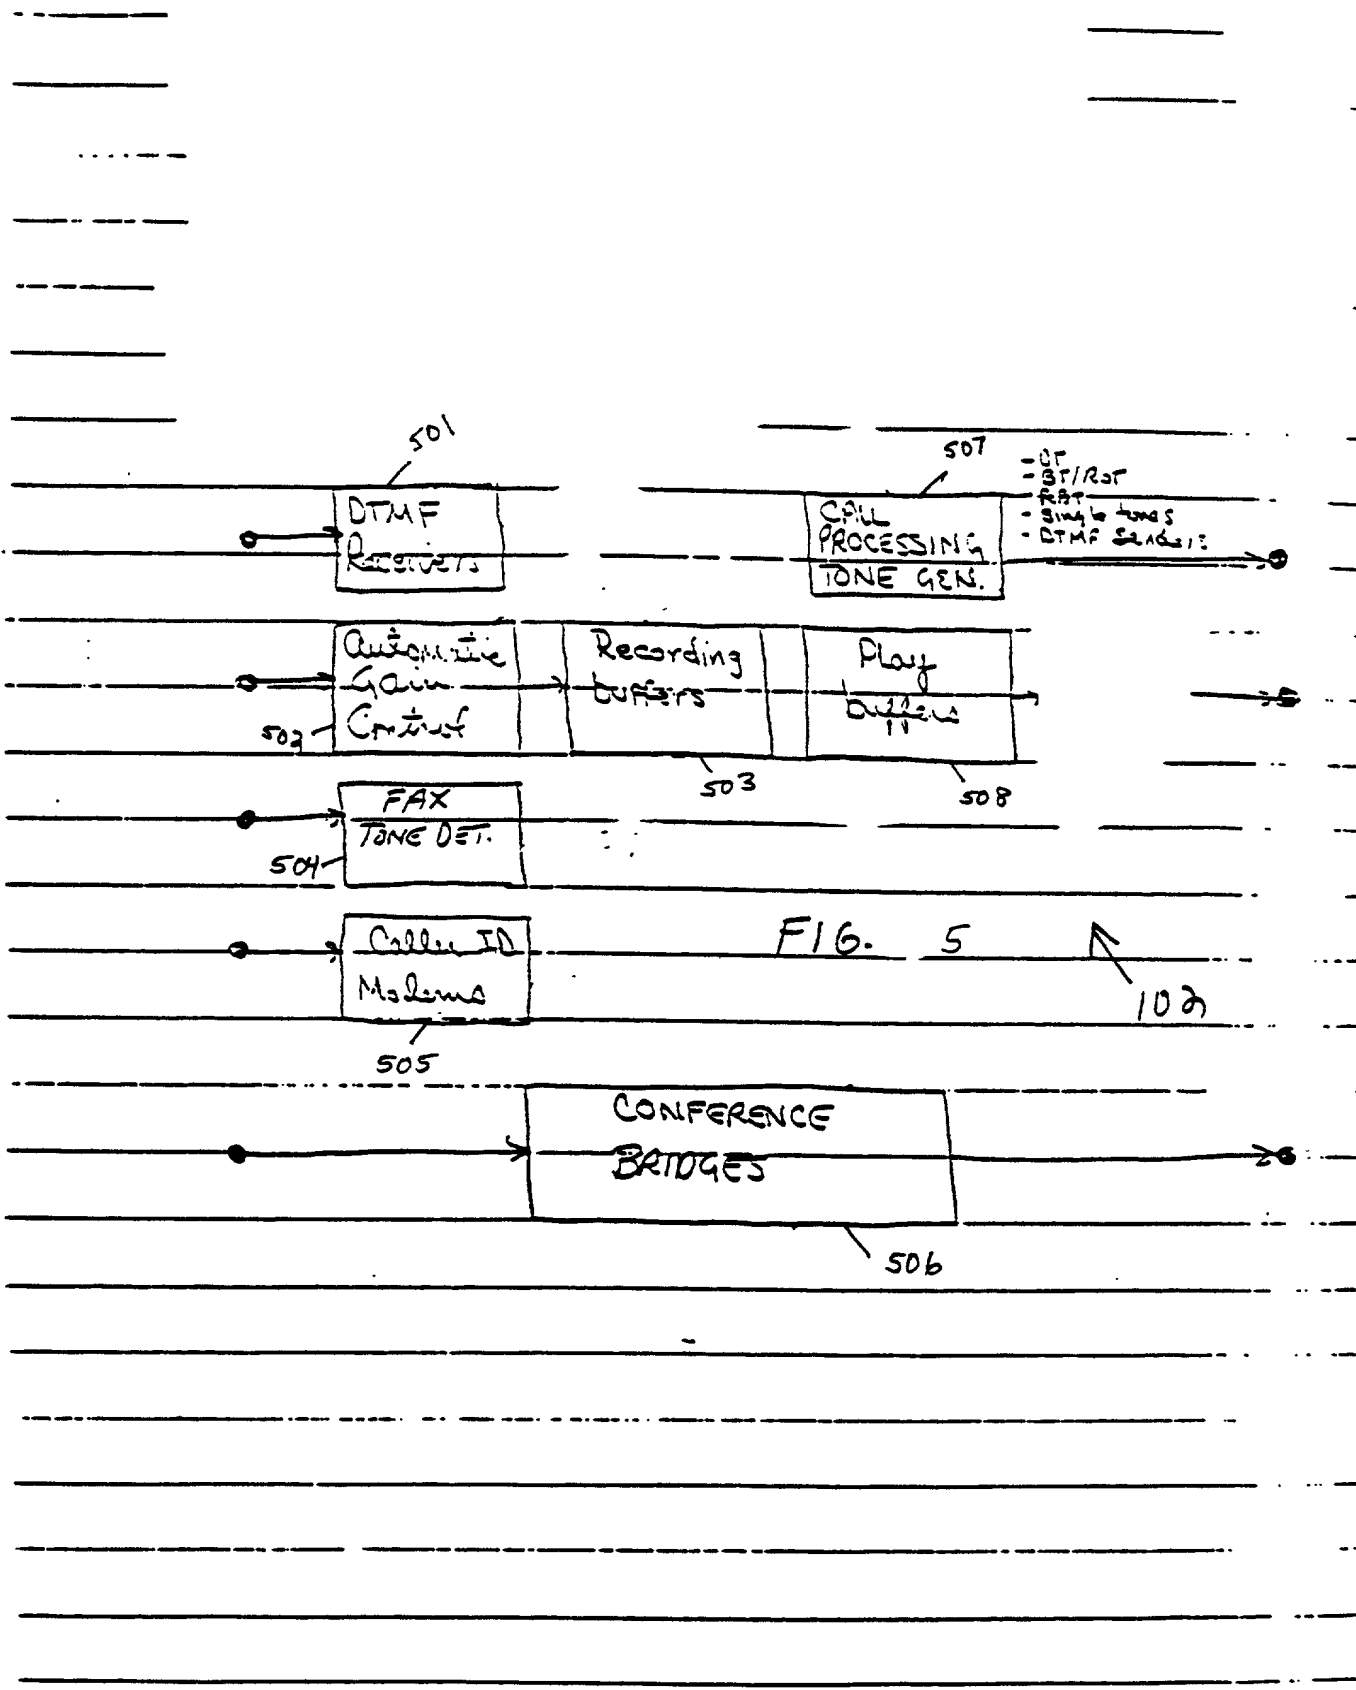 501
DTMF
Receivers
507
CALL
PROCESSING
TONE GEN.
- BT/ROT
- RBT
- Single tones
- DTMF
Automatic
Gain
Control
502
Recording
buffers
503
Play
buffers
508
FAX
TONE DET.
504
Caller ID
Modems
505
FIG. 5
102
CONFERENCE
BRIDGES
506